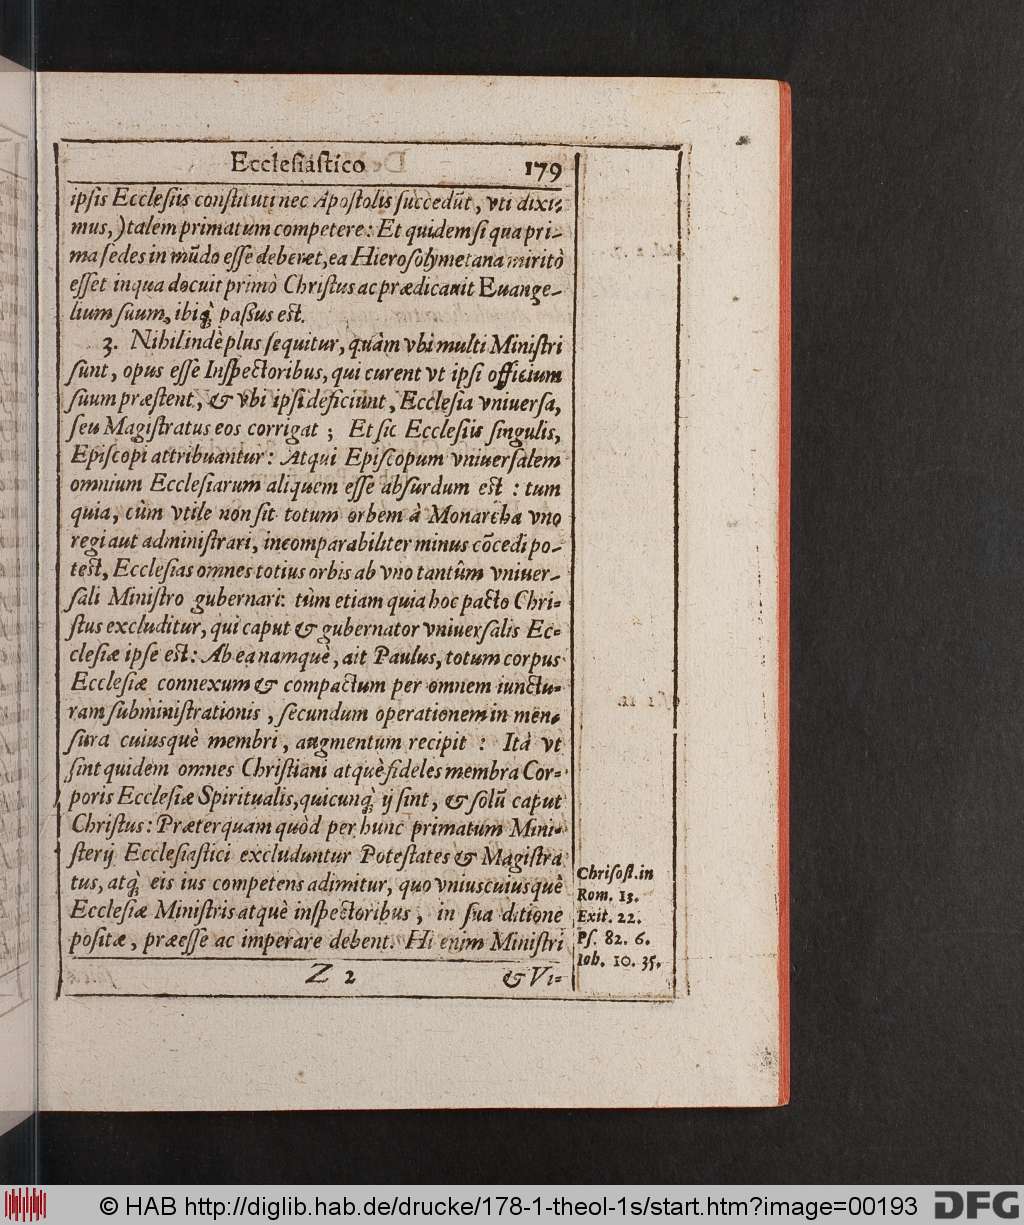 Ecclesiastico 179
ipsis Ecclesiis constituti nec Apostolis succedūt, vti dixi-
mus,) talem primatum competere: Et quidem si qua pri-
ma sedes in mūdo esse deberet, ea Hierosolymetana miritò
esset in qua docuit primò Christus ac prædicauit Euange-
lium suum, ibiq; passus est.
3. Nihil indè plus sequitur, quàm vbi multi Ministri
sunt, opus esse Inspectoribus, qui curent vt ipsi officium
suum præstent, & vbi ipsi deficiunt, Ecclesia vniuersa,
seu Magistratus eos corrigat ; Et sic Ecclesiis singulis,
Episcopi attribuantur: Atqui Episcopum vniuersalem
omnium Ecclesiarum aliquem esse absurdum est : tum
quia, cûm vtile non sit totum orbem à Monarcha vno
regi aut administrari, incomparabiliter minus cōcedi po-
test, Ecclesias omnes totius orbis ab vno tantûm vniuer-
sali Ministro gubernari: tùm etiam quia hoc pacto Chri-
stus excluditur, qui caput & gubernator vniuersalis Ec-
clesiæ ipse est: Ab ea namquè, ait Paulus, totum corpus
Ecclesiæ connexum & compactum per omnem iunctu-
ram subministrationis, secundum operationem in men-
sura cuiusquè membri, augmentum recipit : Ità vt
sint quidem omnes Christiani atquè fideles membra Cor-
poris Ecclesiæ Spiritualis, quicunq; ij sint, & solū caput
Christus: Præterquam quòd per hunc primatum Mini-
sterij Ecclesiastici excluduntur Potestates & Magistra
tus, atq; eis ius competens adimitur, quo vniuscuiusquè
Ecclesiæ Ministris atquè inspectoribus, in sua ditione
positæ, præesse ac imperare debent. Hi enim Ministri
Z 2 & Vi-
Chrisost. in
Rom. 13.
Exit. 22.
Ps. 82. 6.
Ioh. 10. 35.
© HAB http://diglib.hab.de/drucke/178-1-theol-1s/start.htm?image=00193
DFG